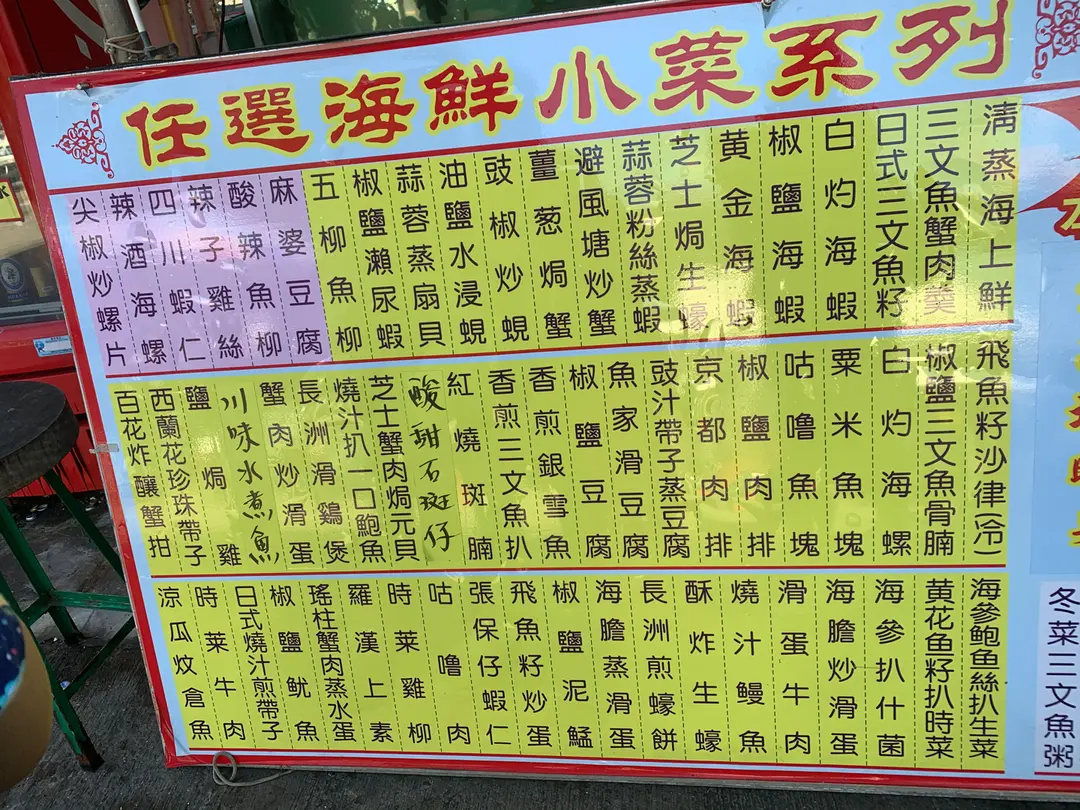 任選海鮮小菜系列
清蒸海上鮮
三文魚蟹肉羹
日式三文魚籽
白灼海蝦
椒鹽海蝦
黄金海蝦
芝士焗生蠔
蒜蓉粉絲蒸蝦
避風塘炒蟹
薑葱焗蟹
豉椒炒蜆
油鹽水浸蜆
蒜蓉蒸扇貝
椒鹽瀨尿蝦
五柳魚柳
麻婆豆腐
酸辣魚柳
辣子雞絲
四川蝦仁
辣酒海螺
尖椒炒螺片
飛魚籽沙律(冷)
椒鹽三文魚骨腩
白灼海螺
粟米魚塊
咕嚕魚塊
椒鹽肉排
京都肉排
豉汁帶子蒸豆腐
魚家滑豆腐
椒鹽豆腐
香煎銀雪魚
香煎三文魚扒
紅燒斑腩
酸甜石斑仔
芝士蟹肉焗元貝
燒汁扒一口鮑魚
長洲滑鷄煲
蟹肉炒滑蛋
川味水煮魚
鹽焗雞
西蘭花珍珠帶子
百花炸釀蟹拑
海參鮑鱼絲扒生菜
黄花鱼籽扒時菜
海參扒什菌
海膽炒滑蛋
滑蛋牛肉
燒汁鰻魚
酥炸生蠔
長洲煎蠔餅
海膽蒸滑蛋
椒鹽泥鯭
飛魚籽炒蛋
張保仔蝦仁
咕嚕肉
時菜雞柳
羅漢上素
瑤柱蟹肉蒸水蛋
椒鹽魷魚
日式燒汁煎帶子
時菜牛肉
涼瓜炆倉魚
冬菜三文魚粥